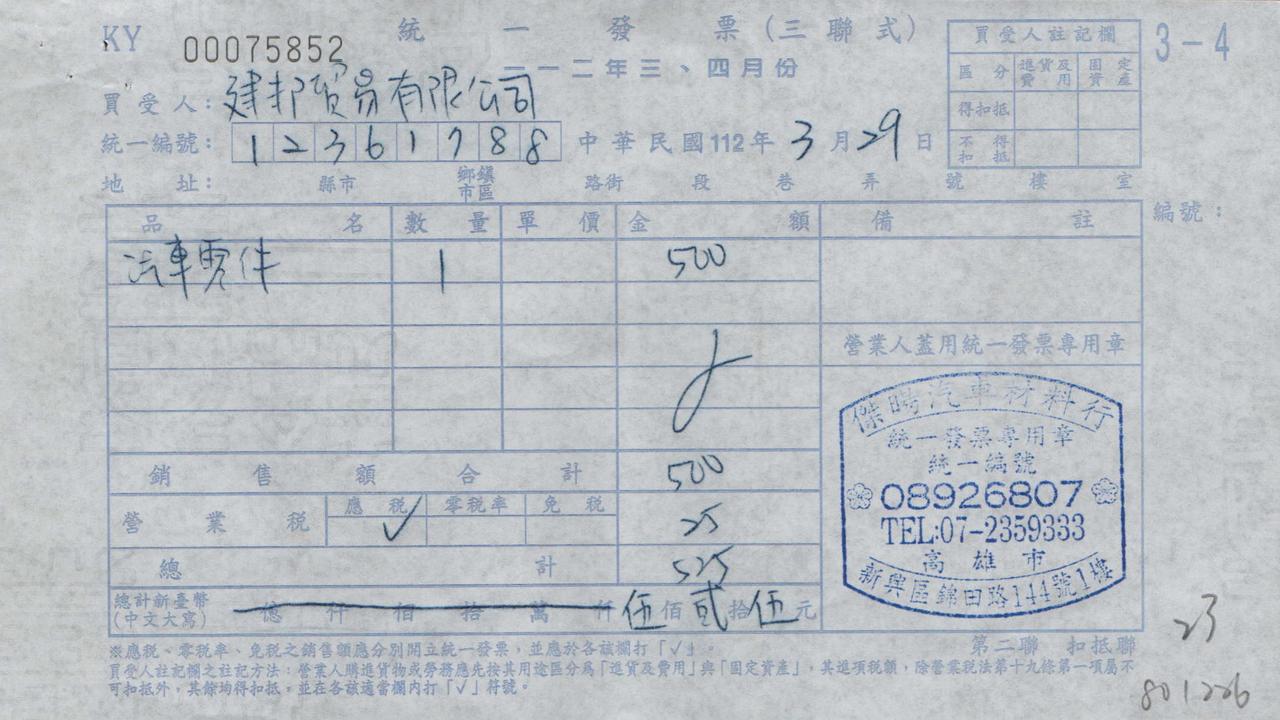 KY 00075852 統一發票(三聯式) 3-4
一一二年三、四月份
買受人: 建邦貿易有限公司
統一編號: 12361788 中華民國112年3月29日
地址: 縣市 鄉鎮市區 路街 段 巷 弄 號 樓 室
買受人註記欄
區分 進貨及費用 固定資產
得扣抵
不得扣抵
編號:
品名 數量 單價 金額 備註
汽車零件 1 500
營業人蓋用統一發票專用章
銷售額合計 500
營業稅 應稅 ✓ 零稅率 免稅 25
總計 525
總計新臺幣(中文大寫) 億仟佰拾萬仟伍佰貳拾伍元
傑暘汽車材料行
統一發票專用章
統一編號
08926807
TEL:07-2359333
高雄市
新興區錦田路144號1樓
※應稅、零稅率、免稅之銷售額應分別開立統一發票,並應於各該欄打「✓」。
第二聯 扣抵聯
買受人註記欄之註記方法:營業人購進貨物或勞務應先按其用途區分為「進貨及費用」與「固定資產」,其進項稅額,除營業稅法第十九條第一項屬不
可扣抵外,其餘均得扣抵,並在各該適當欄內打「✓」符號。
23
801226